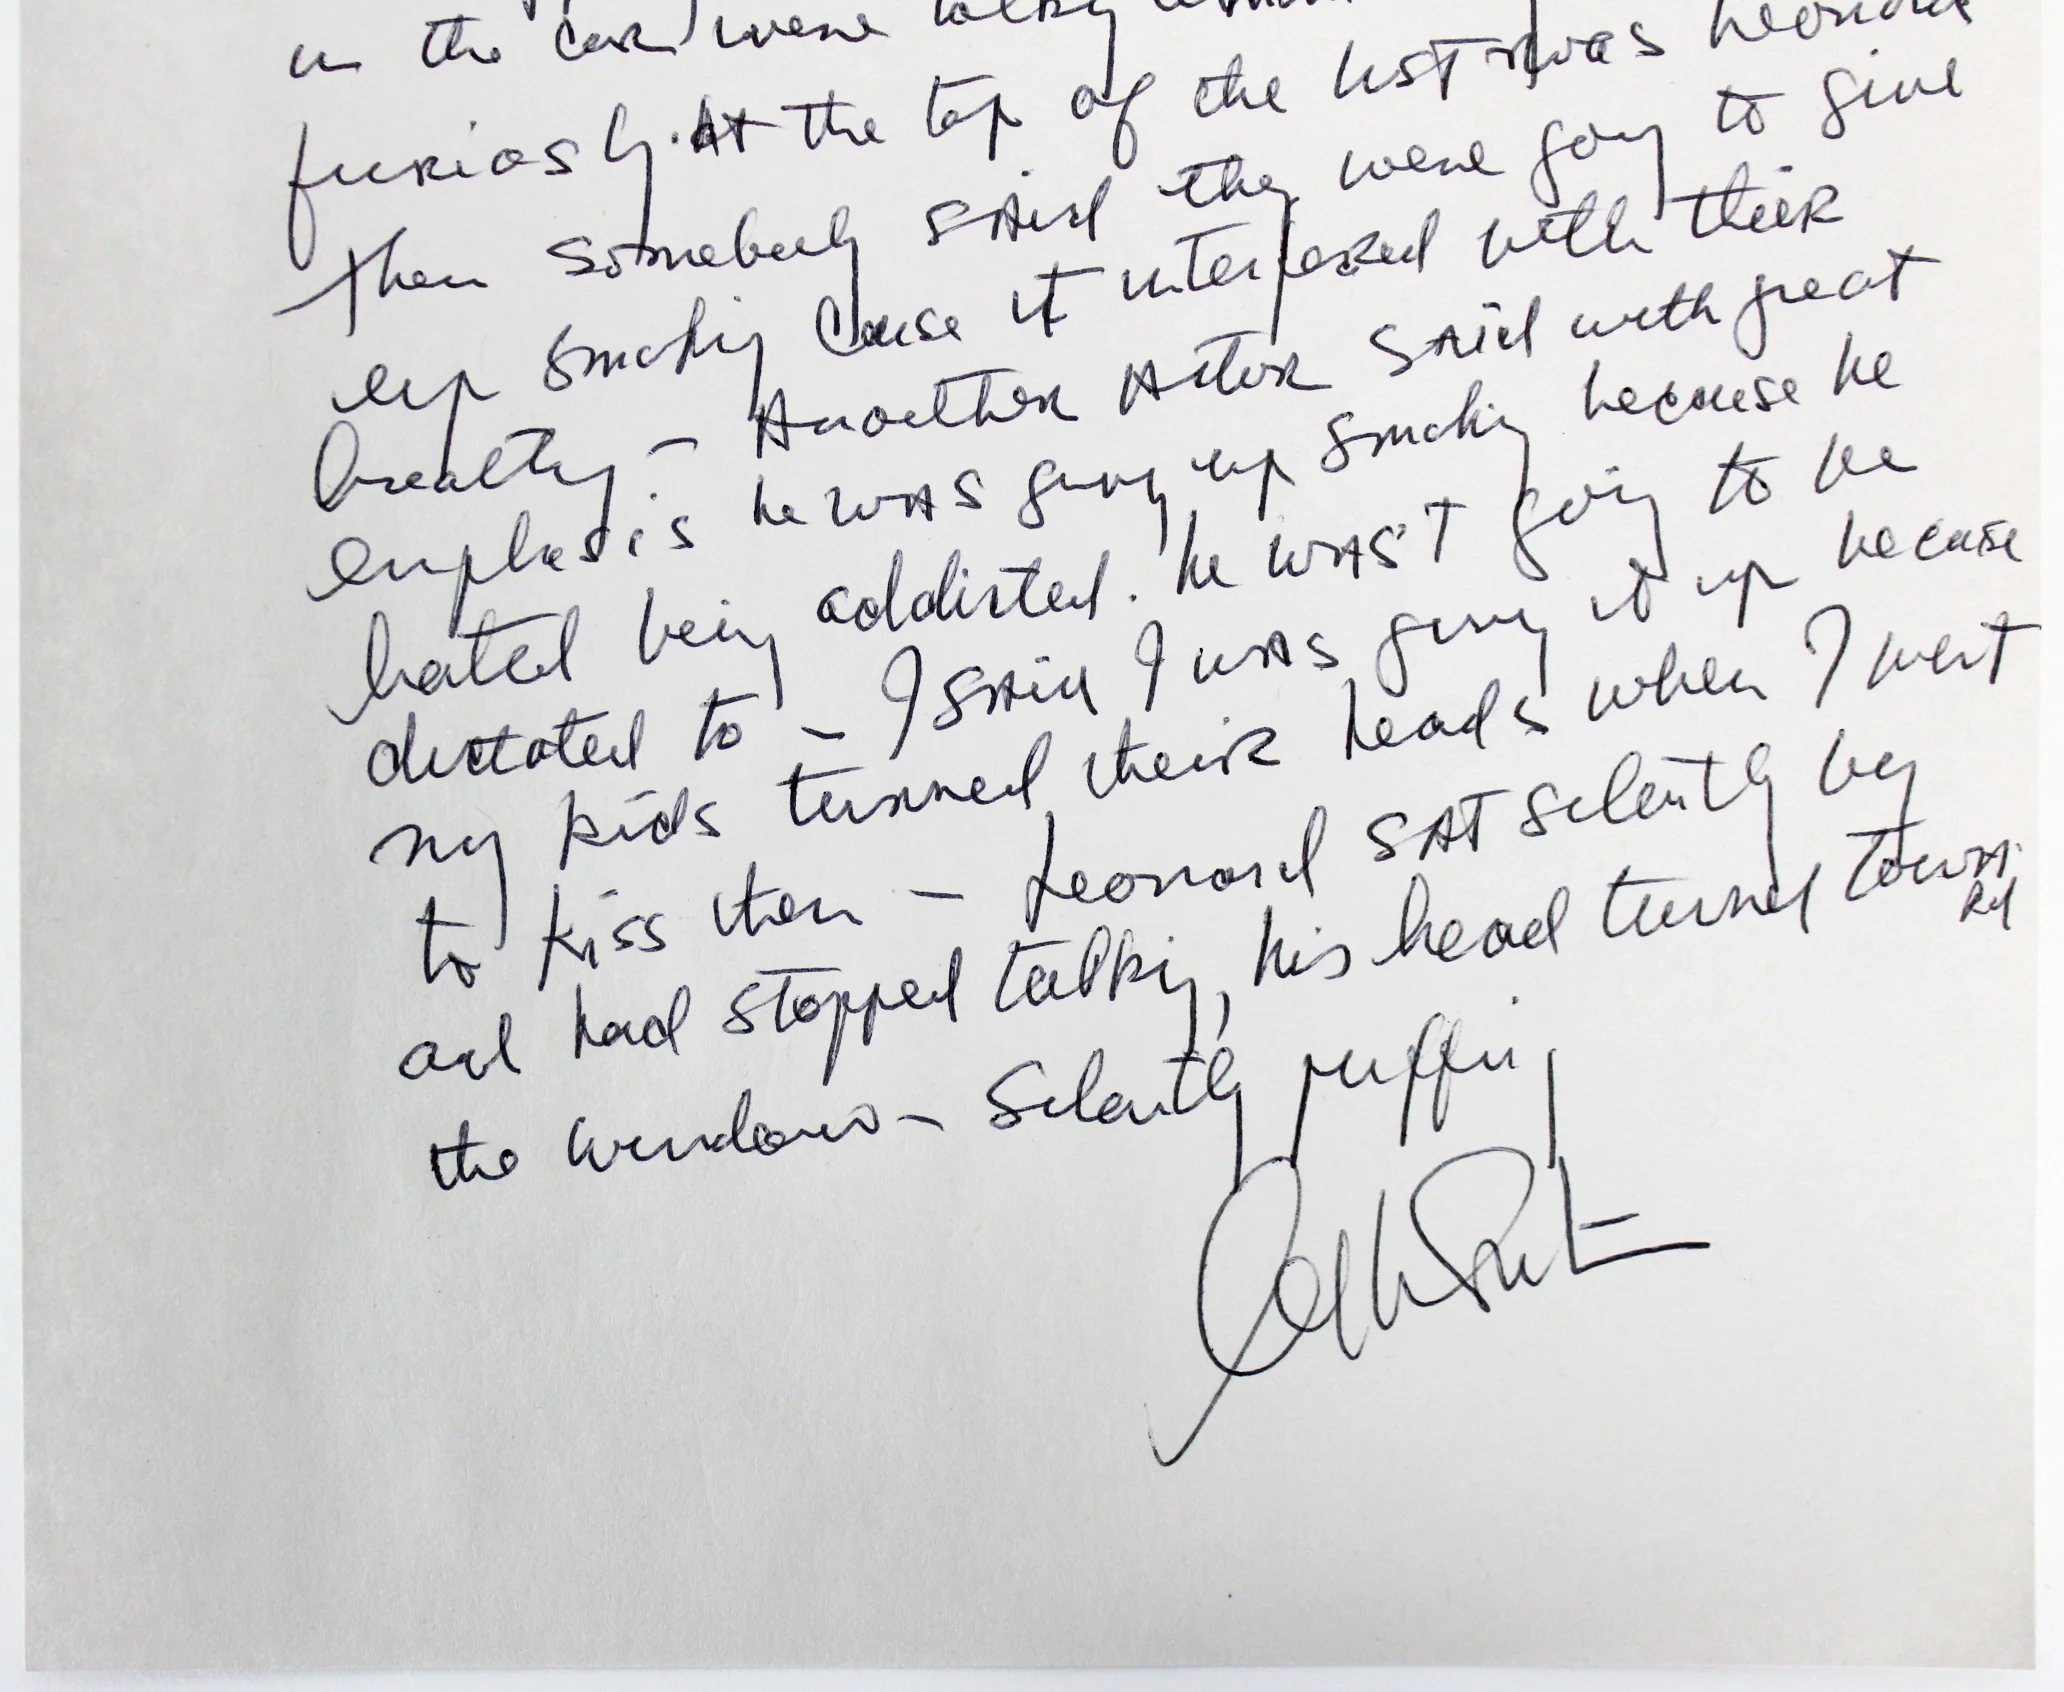 in the car) were talking
furiosly. At the top of the list was Leonard
Then somebody said they were going to give
up smoking cause it interfered with their
breathing - Another Actor said with great
emphasis he was giving up smoking because he
hated being addicted. he wAS'T going to be
dictated to - I SAid I wAS giving it up because
my kids turned their heads when I went
to kiss them - Leonard SAT silently by
and had stopped talking, his head turned towARd
the window - Silently puffing